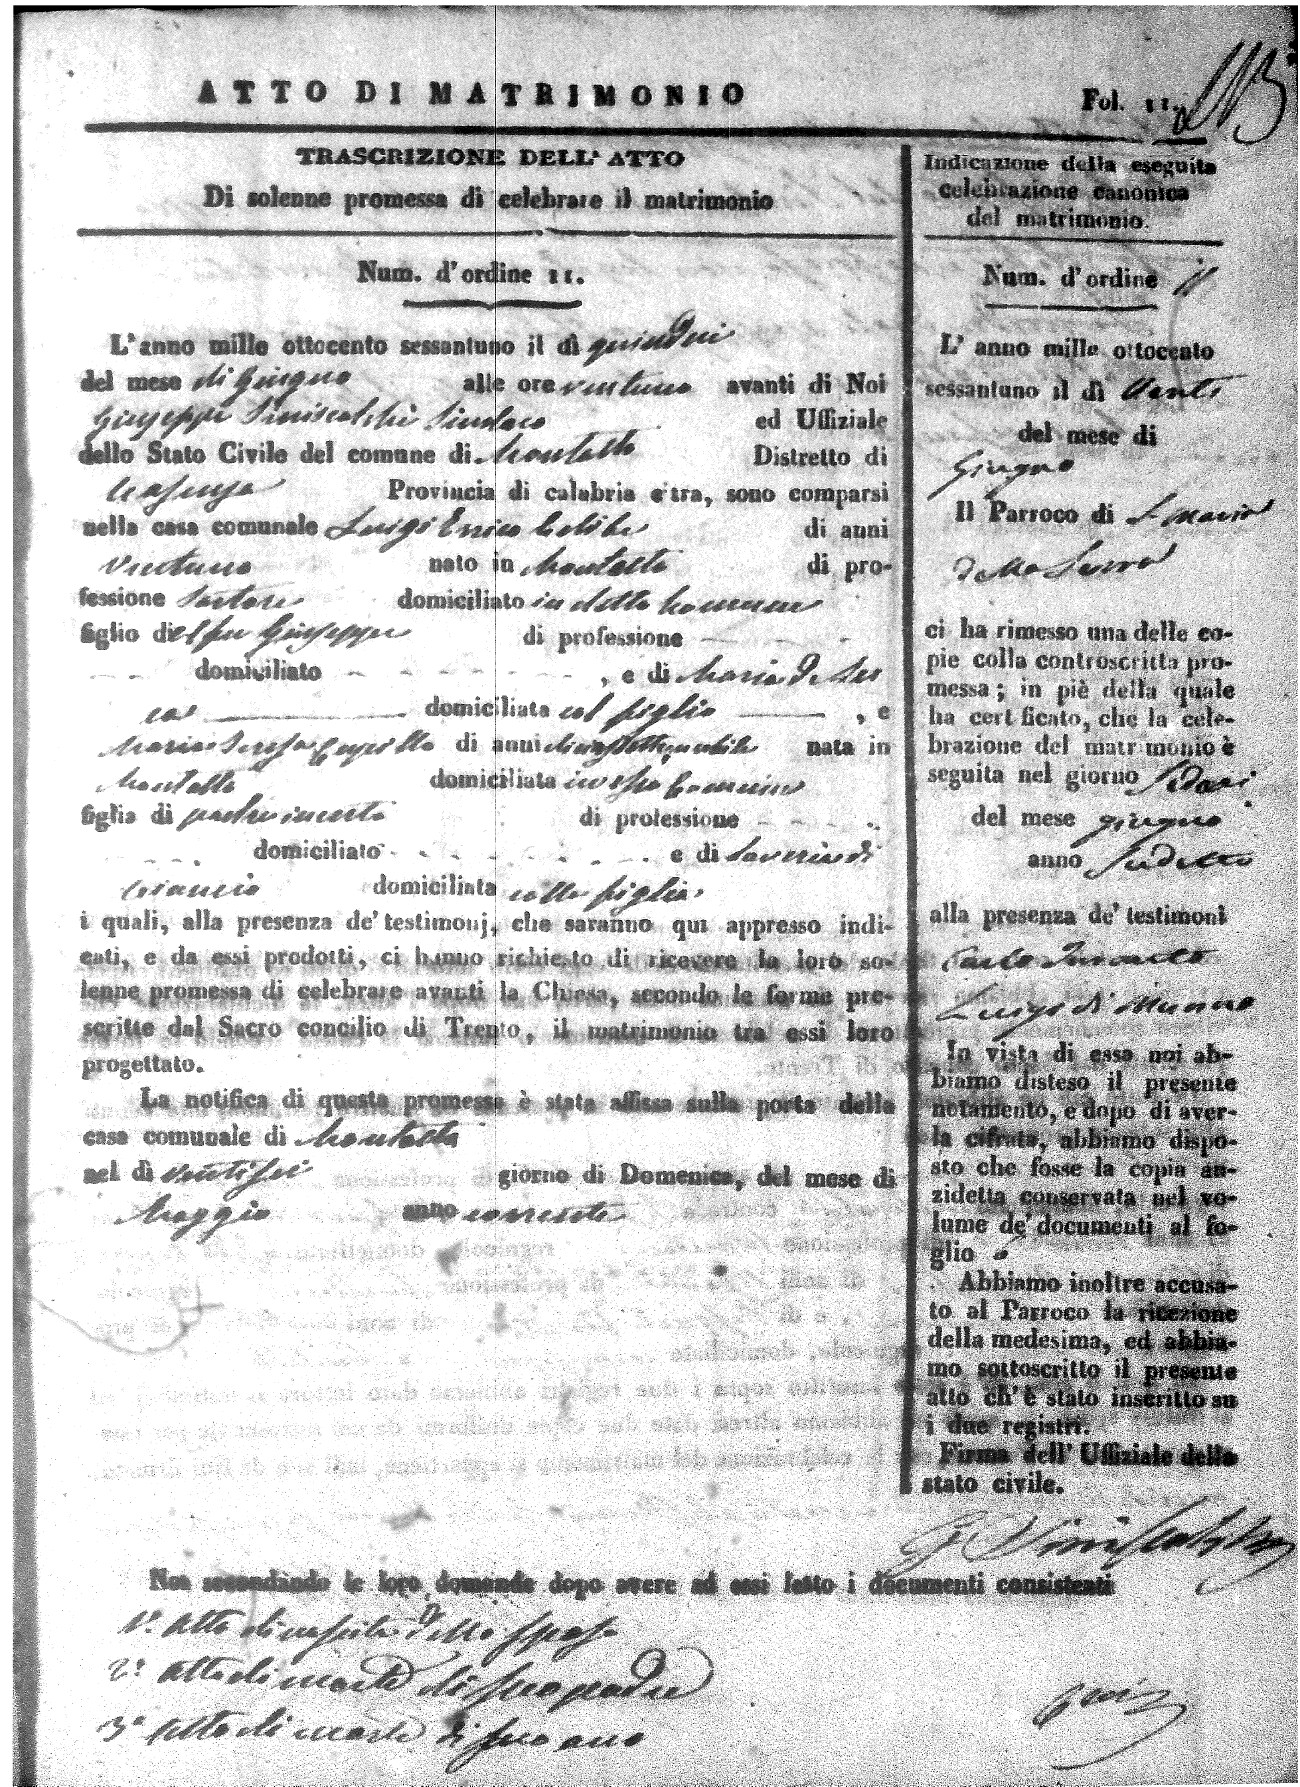 ATTO DI MATRIMONIO
Fol. 11.
TRASCRIZIONE DELL' ATTO
Di solenne promessa di celebrare il matrimonio
Num. d'ordine 11.
L'anno mille ottocento sessantuno il dì quindici
del mese di Giugno alle ore ventuno avanti di Noi
Giuseppe Siniscalchi Sindaco ed Uffiziale
dello Stato Civile del comune di Montalto Distretto di
Cosenza Provincia di calabria citra, sono comparsi
nella casa comunale Luigi Errico di anni
ventuno nato in Montalto di pro-
fessione Sartore domiciliato in detto Comune
figlio del fu Giuseppe di professione
domiciliato , e di Maria de
domiciliata col figlio , e
Maria Teresa di anni nata in
Montalto domiciliata in esso Comune
figlia di padre incerto di professione
domiciliato e di Saveria di
domiciliata colla figlia
i quali, alla presenza de' testimonj, che saranno qui appresso indi-
cati, e da essi prodotti, ci hanno richiesto di ricevere la loro so-
lenne promessa di celebrare avanti la Chiesa, secondo le forme pre-
scritte dal Sacro concilio di Trento, il matrimonio tra essi loro
progettato.
La notifica di questa promessa è stata affissa sulla porta della
casa comunale di Montalto
nel dì ventisei giorno di Domenica, del mese di
Maggio anno corrente
Indicazione della eseguita
celebrazione canonica
del matrimonio.
Num. d'ordine 11
L' anno mille ottocento
sessantuno il dì Venti
del mese di
Giugno
Il Parroco di S. Maria
della Serra
ci ha rimesso una delle co-
pie colla controscritta pro-
messa; in piè della quale
ha cert ficato, che la cele-
brazione del matr monio è
seguita nel giorno Sedici
del mese giugno
anno Sudetto
alla presenza de' testimoni
Carlo
Luigi di Munno
In vista di essa noi ab-
biamo disteso il presente
notamento, e dopo di aver-
la cifrata, abbiamo dispo-
sto che fosse la copia an-
zidetta conservata nel vo-
lume de' documenti al fo-
glio
Abbiamo inoltre accusa-
to al Parroco la ricezione
della medesima, ed abbia-
mo sottoscritto il presente
atto ch'è stato inscritto su
i due registri.
Firma dell' Uffiziale dello
stato civile.
G. Siniscalchi
Noi secondando le loro domande dopo avere ad essi letto i documenti consistenti
1º. Atto di nascita dello sposo
2º. Atto di morte di suo padre
3º Atto di morte di suo avo